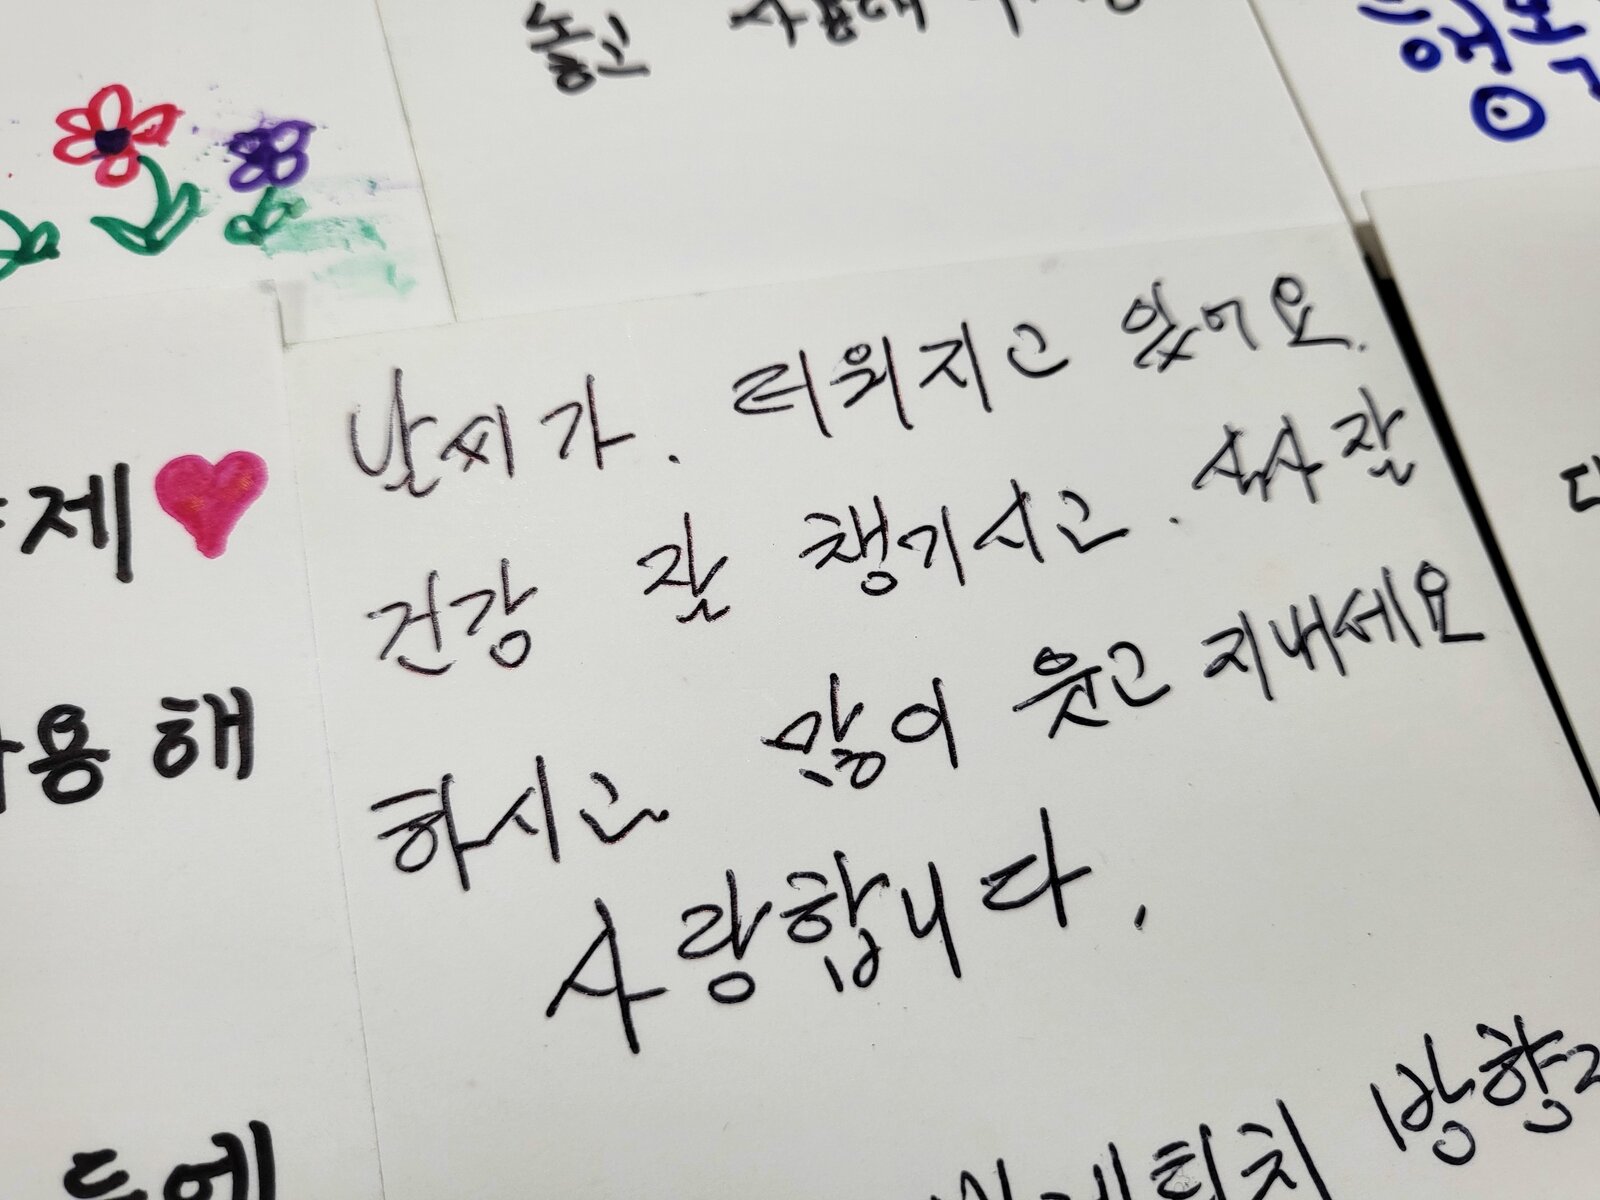 높고
제
용 해
날씨가. 더워지고 있어요.
건강 잘 챙기시고. 식사잘
하시고 많이 웃고 지내세요
사랑합니다.
에
방향